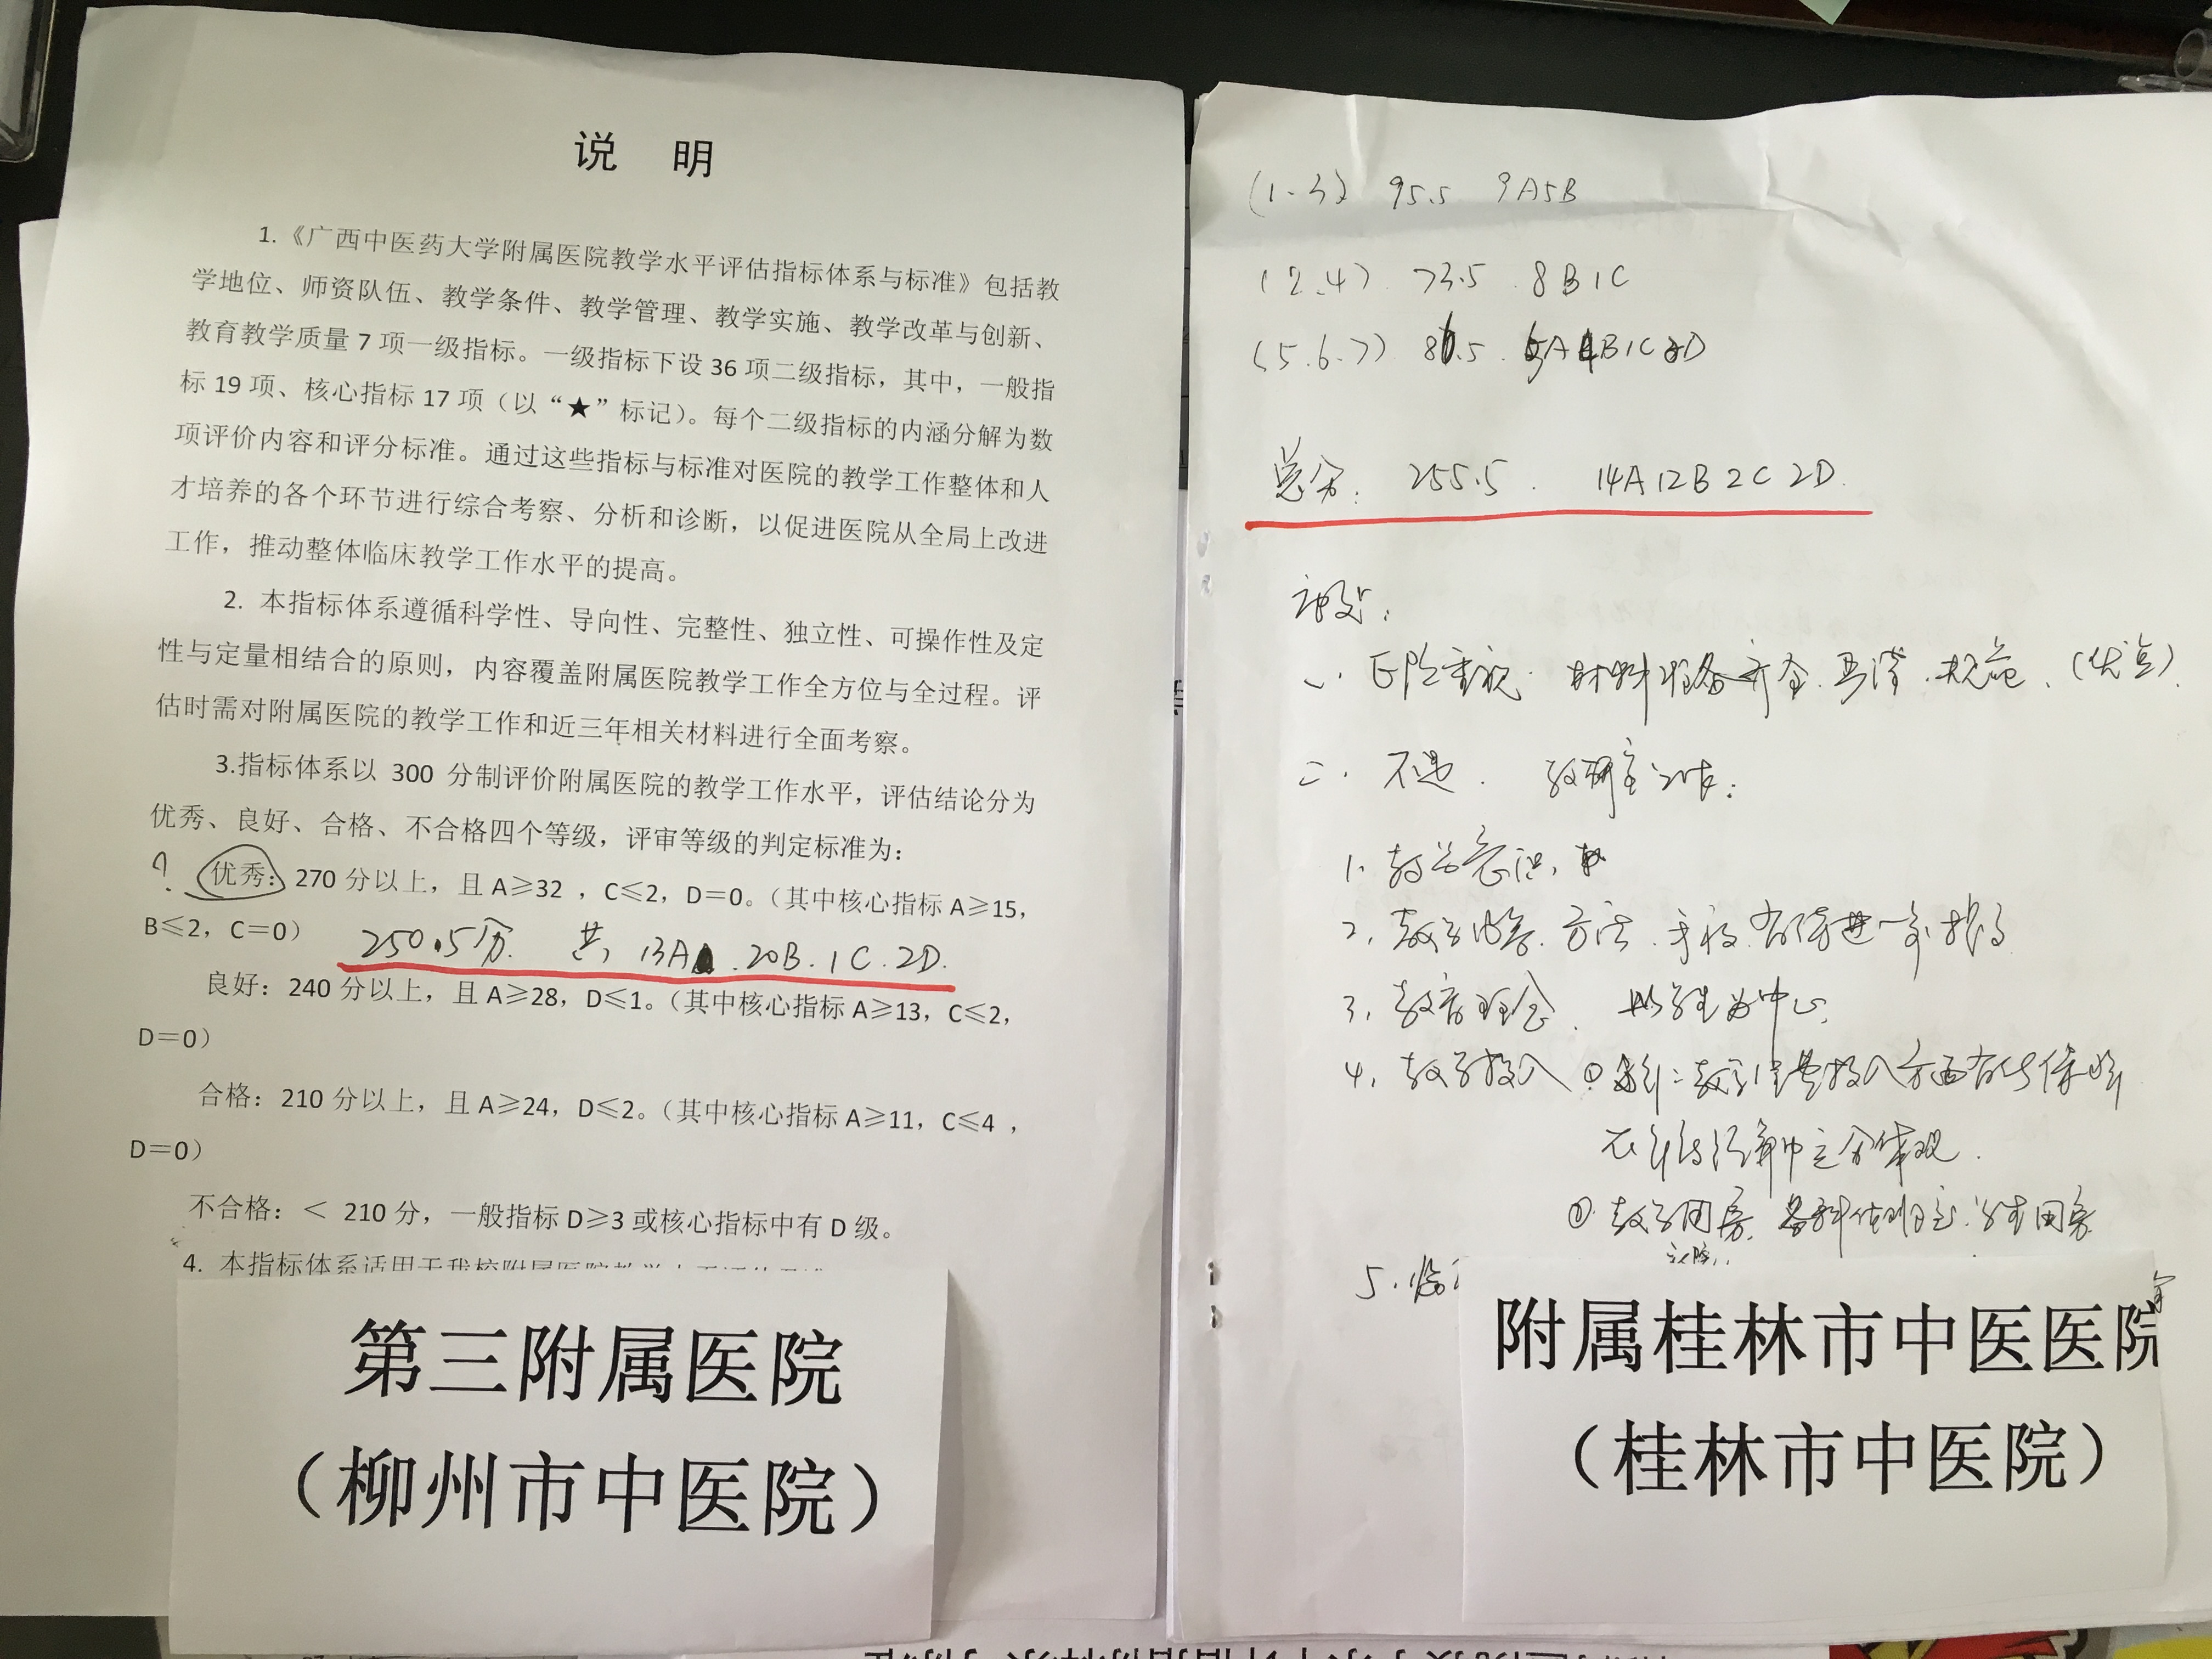 说 明
1.《广西中医药大学附属医院教学水平评估指标体系与标准》包括教
学地位、师资队伍、教学条件、教学管理、教学实施、教学改革与创新、
教育教学质量 7 项一级指标。一级指标下设 36 项二级指标，其中，一般指
标 19 项、核心指标 17 项（以“★”标记）。每个二级指标的内涵分解为数
项评价内容和评分标准。通过这些指标与标准对医院的教学工作整体和人
才培养的各个环节进行综合考察、分析和诊断，以促进医院从全局上改进
工作，推动整体临床教学工作水平的提高。
2. 本指标体系遵循科学性、导向性、完整性、独立性、可操作性及定
性与定量相结合的原则，内容覆盖附属医院教学工作全方位与全过程。评
估时需对附属医院的教学工作和近三年相关材料进行全面考察。
3.指标体系以 300 分制评价附属医院的教学工作水平，评估结论分为
优秀、良好、合格、不合格四个等级，评审等级的判定标准为：
优秀：270 分以上，且 A≥32 ，C≤2，D＝0。（其中核心指标 A≥15，
B≤2，C＝0）
250.5分. 共, 13A .20B.1C.2D.
良好：240 分以上，且 A≥28，D≤1。（其中核心指标 A≥13，C≤2，
D＝0）
合格：210 分以上，且 A≥24，D≤2。（其中核心指标 A≥11，C≤4 ，
D＝0）
不合格：＜ 210 分，一般指标 D≥3 或核心指标中有 D 级。
4. 本指标体系适用于我校附属医院教学
第三附属医院
（柳州市中医院）
(1-3) 95.5 9A5B
(2.4) 73.5 8B1C
(5.6.7) 8 .5 B1C
总分: 255.5 14A12B2C2D.
一. 医院重视. 材料准备齐全. 规范. (优点).
二. 不足. 教研室
1. 教学意识,
2. 教学内容. 方法. 手段. 有待进一步提高
3. 教育理念. 以学生为中心.
4. 教学投入 ① 教学经费投入方面
体现.
② 教学用房. 学生用房
5. 临
附属桂林市中医医院
（桂林市中医院）